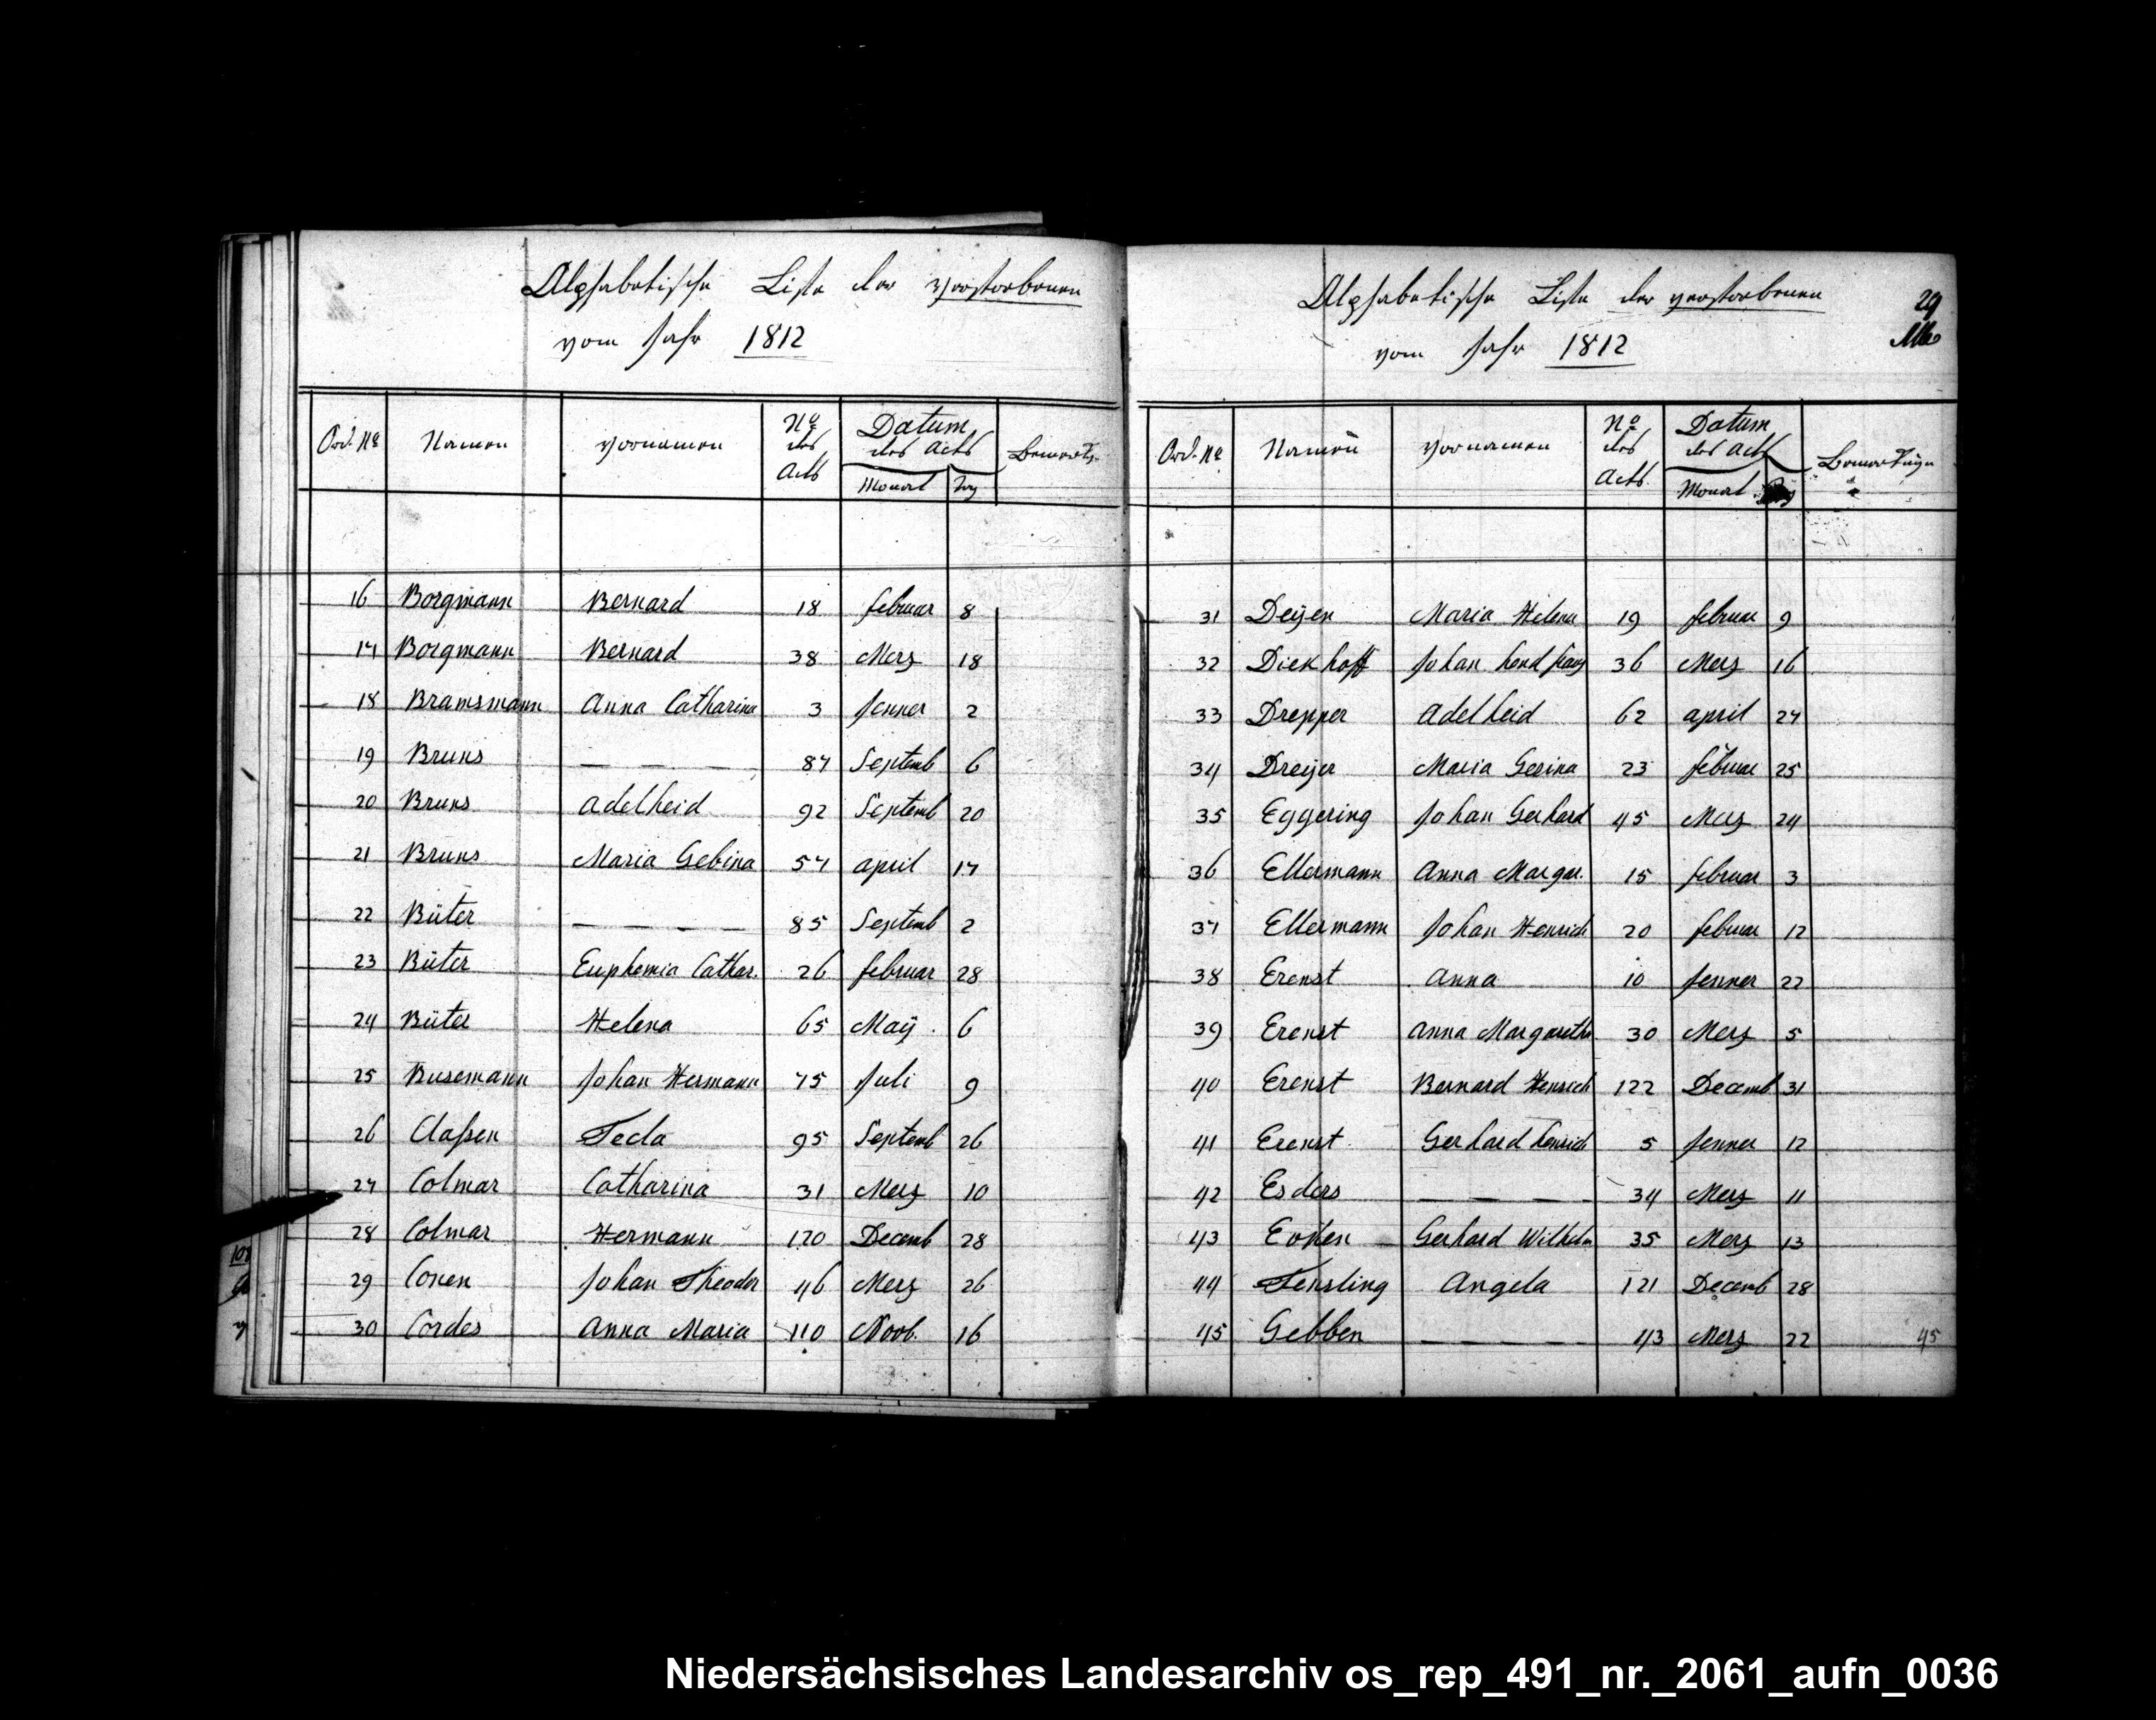 Alphabetische Liste der verstorbenen
vom Jahr 1812
Ord. No Namen Vornamen No des Acts Datum des Acts Monat Tag Bemerk.
16 Borgmann Bernard 18 februar 8
17 Borgmann Bernard 38 Merz 18
18 Bramsmann Anna Catharina 3 Jenner 2
19 Bruns — — — — 87 Septemb 6
20 Bruns Adelheid 92 Septemb 20
21 Bruns Maria Gebina 57 april 17
22 Büter — — — — 85 Septemb 2
23 Büter Euphemia Cathar. 26 februar 28
24 Büter Helena 65 Maÿ 6
25 Busemann Johan Hermann 75 Juli 9
26 Claßen Tecla 95 Septemb 26
27 Colmar Catharina 31 Merz 10
28 Colmar Hermann 120 Decemb 28
29 Conen Johan Theodor 46 Merz 26
30 Cordes Anna Maria 110 Novb. 16
Alphabetische Liste der verstorbenen
vom Jahr 1812
29
Ord. No Namen Vornamen No des Acts Datum des Acts Monat Tag Bemerkungen
31 Deÿen Maria Helena 19 februar 9
32 Diekhoff Johan 36 Merz 16
33 Drepper Adelheid 62 april 27
34 Dreÿer Maria Gesina 23 februar 25
35 Eggering Johan Gerhard 45 Merz 24
36 Ellermann Anna Margar. 15 februar 3
37 Ellermann Johan Henrich 20 februar 12
38 Erenst Anna 10 Jenner 22
39 Erenst Anna Margaretha 30 Merz 5
40 Erenst Bernard Henrich 122 Decemb 31
41 Erenst Gerhard henrich 5 Jenner 12
42 Esders — — — — 34 Merz 11
43 Gerhard Wilhelm 35 Merz 13
44 Fensling Angela 121 Decemb 28
45 Gebben — — — — 43 Merz 22 45
Niedersächsisches Landesarchiv os_rep_491_nr._2061_aufn_0036